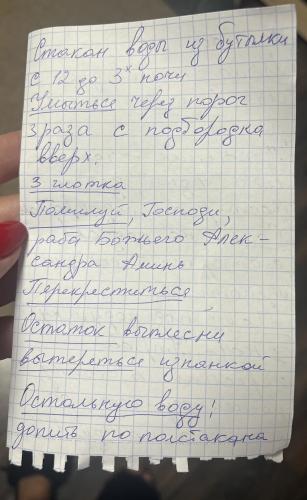 Стакан воды из бутылки
с 12 до 3х ночи
Умыться через порог
3 раза с подбородка
вверх.
3 глотка
Помилуй, Господи,
раба Божьего Алек-
сандра Аминь
Перекреститься
Остаток выплесни
вытереться изнанкой
Остальную воду!
допить по полстакана